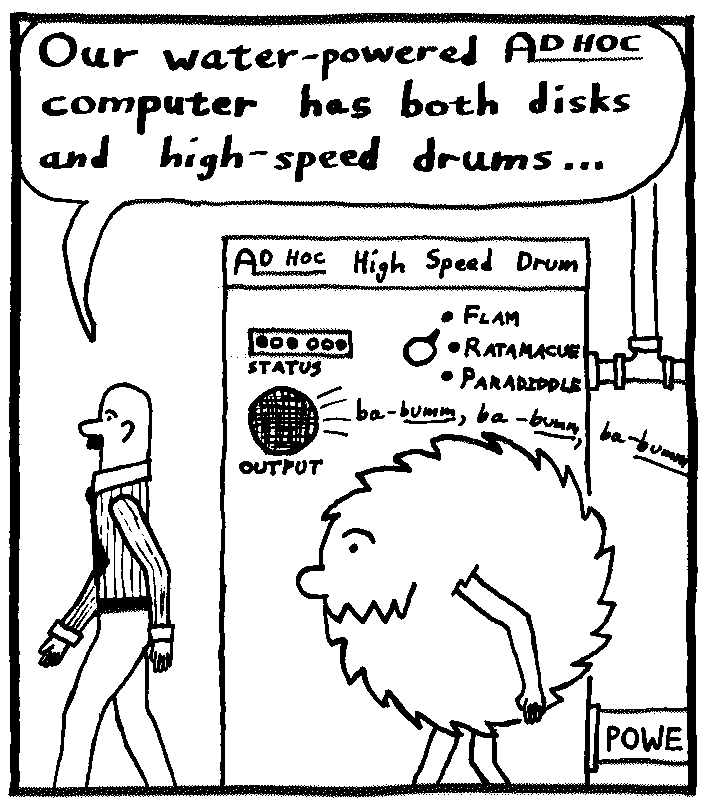 Our water-powered AD HOC
computer has both disks
and high-speed drums...
AD HOC High Speed Drum
FLAM
RATAMACUE
PARADIDDLE
STATUS
OUTPUT
ba-bumm, ba-bumm, ba-bumm
POWE